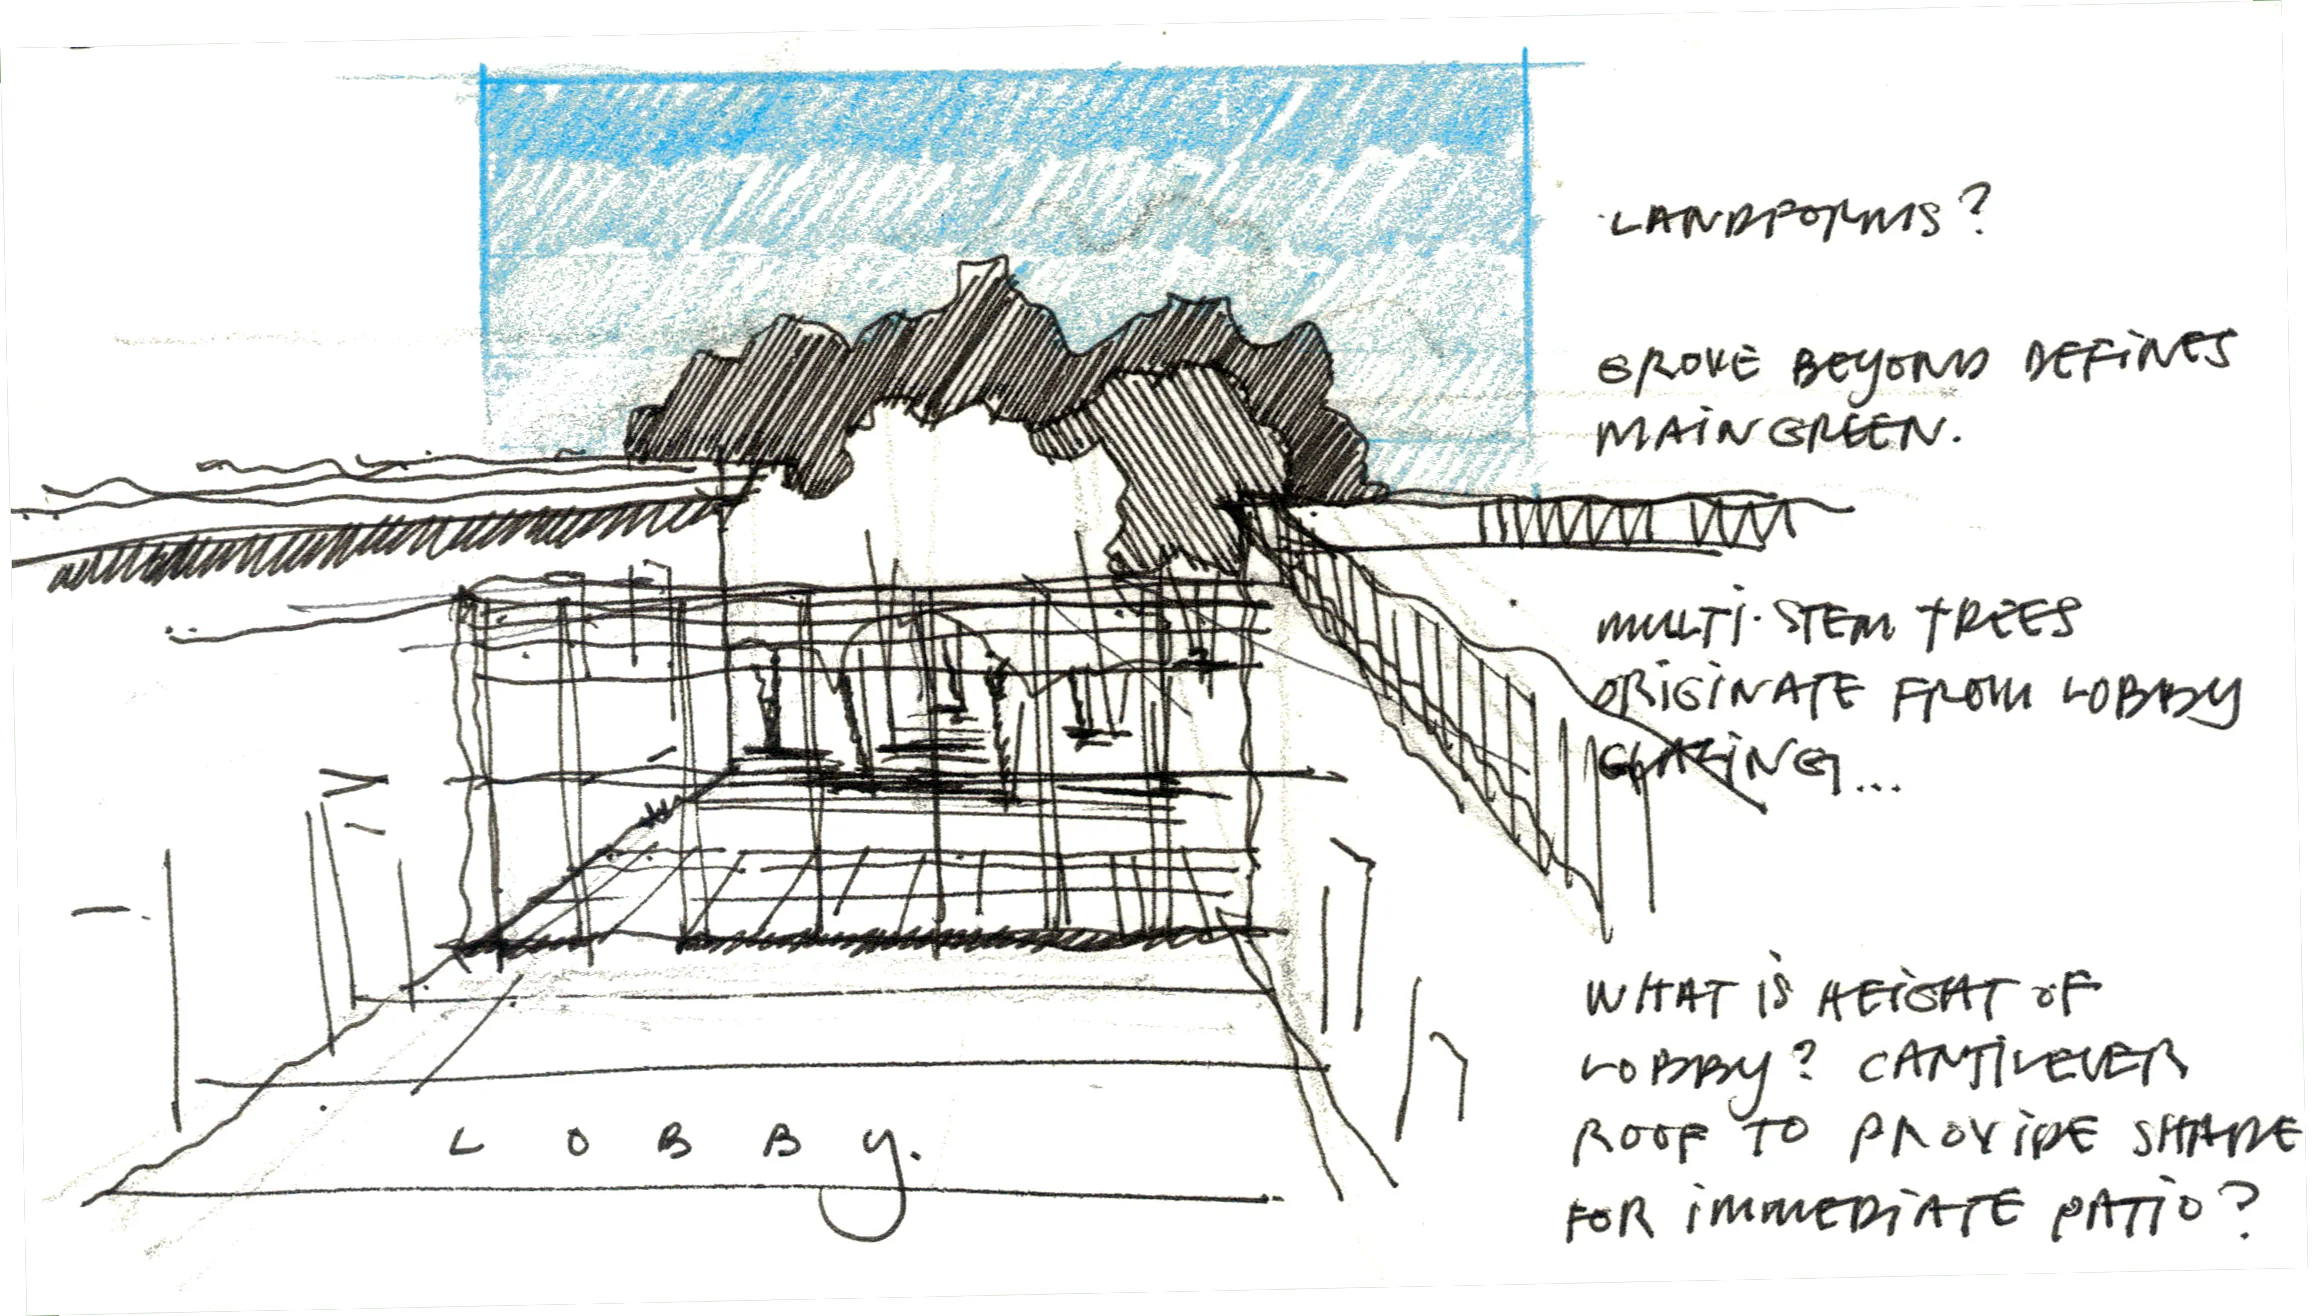 LANDFORMS?
GROVE BEYOND DEFINES
MAIN GREEN.
MULTI-STEM TREES
ORIGINATE FROM LOBBY
GLAZING...
WHAT IS HEIGHT OF
LOBBY? CANTILEVER
ROOF TO PROVIDE SHADE
FOR IMMEDIATE PATIO?
LOBBY.